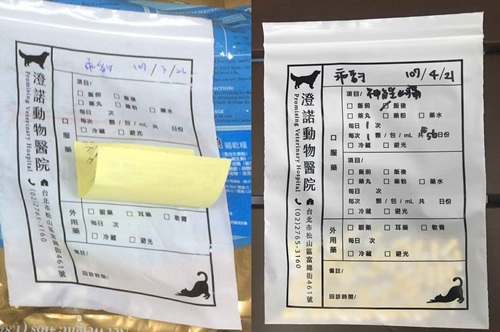 107/3/22
澄諾動物醫院
Promising Veterinary Hospital
台北市松山區富錦街461號
(02)2765-3160
口服藥
項目/
□ 飯前 □ 飯後
□ 藥丸 □ 藥粉 □ 藥水
每日 1 次
每次 顆 / 包 / mL 共 日份
□ 冷藏 □ 避光
外用藥
□ 眼藥 □ 耳藥 □ 軟膏
每日 次
□ 冷藏 □ 避光
備註/
回診時間/
107/4/21
澄諾動物醫院
Promising Veterinary Hospital
台北市松山區富錦街461號
(02)2765-3160
口服藥
項目/
□ 飯前 □ 飯後
□ 藥丸 □ 藥粉 □ 藥水
每日 1 次
每次 顆 / 包 / mL 共 50 日份
□ 冷藏 □ 避光
項目/
□ 飯前 □ 飯後
□ 藥丸 □ 藥粉 □ 藥水
每日 次
每次 顆 / 包 / mL 共 日份
□ 冷藏 □ 避光
外用藥
□ 眼藥 □ 耳藥 □ 軟膏
每日 次
□ 冷藏 □ 避光
備註/
回診時間/